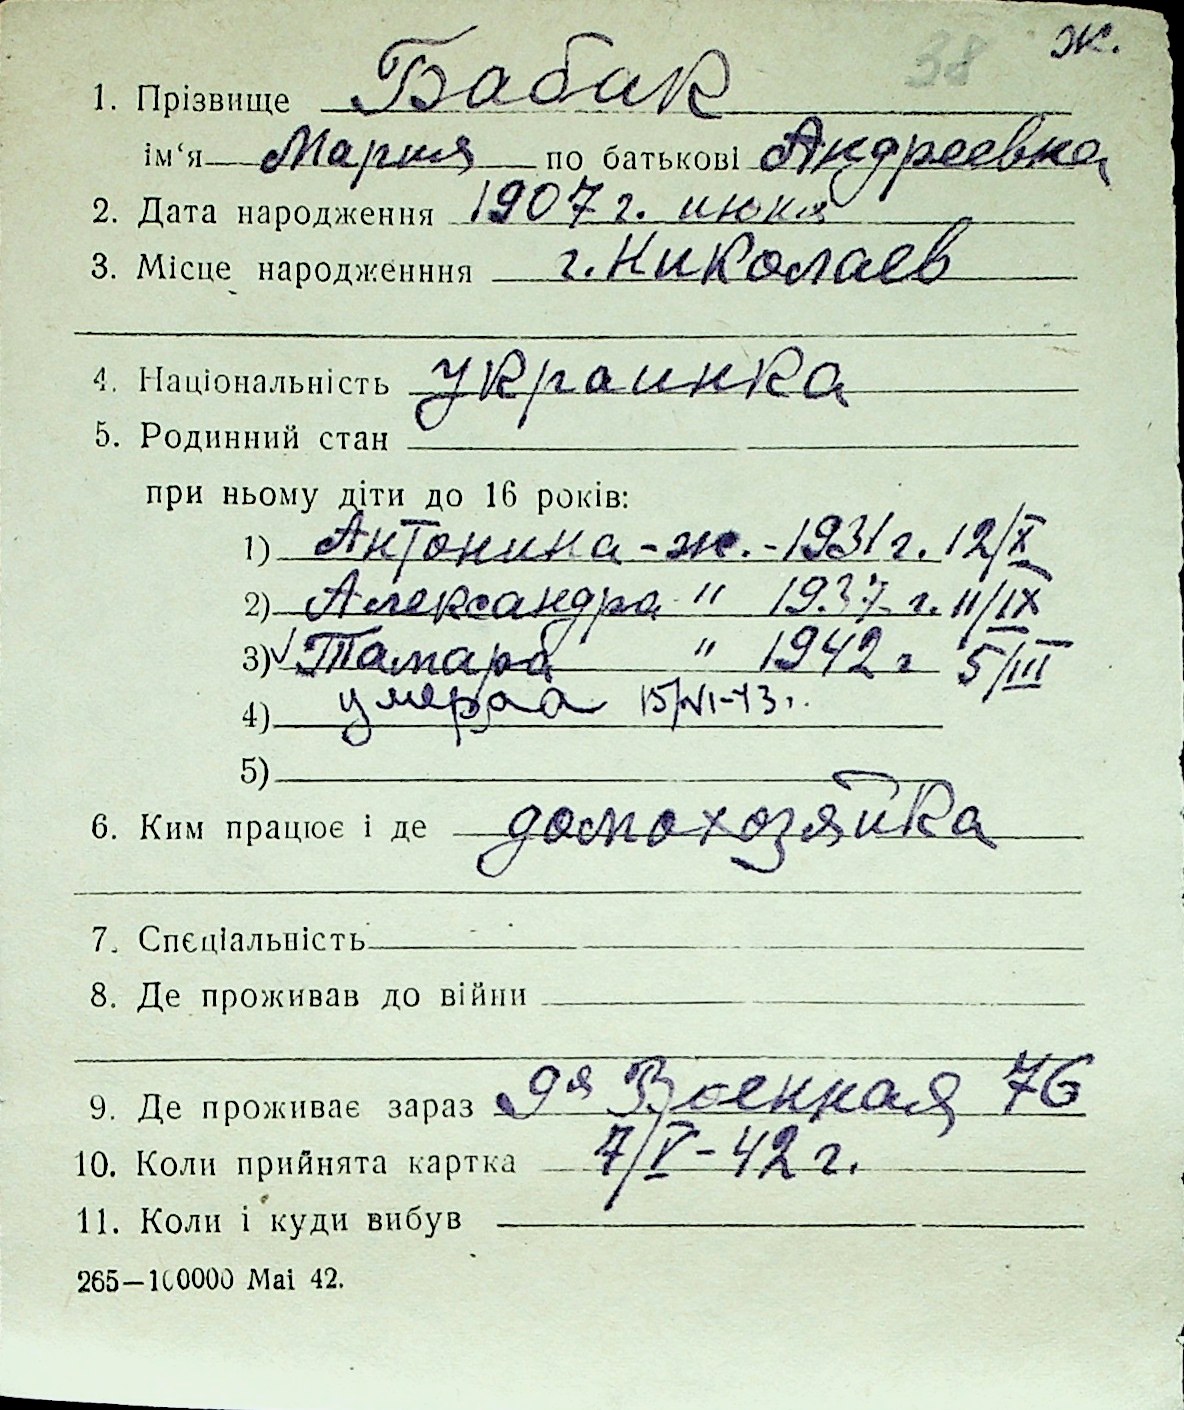 38 ж.
1. Прізвище Бабак
ім‘я Мария по батькові Андреевна
2. Дата народження 1907 г. июня
3. Місце народженння г. Николаев
4. Національність украинка
5. Родинний стан
при ньому діти до 16 років:
1) Антонина - ж. - 1931 г. 12/X
2) Александра " 1937 г. 11/IX
3) Тамара " 1942 г 5/III
4) умерла 15/VI-43 г.
5)
6. Ким працює і де домохозяйка
7. Спеціальність
8. Де проживав до війни
9. Де проживає зараз 9я Военная 76
10. Коли прийнята картка 7/V - 42 г.
11. Коли і куди вибув
265—100000 Mai 42.